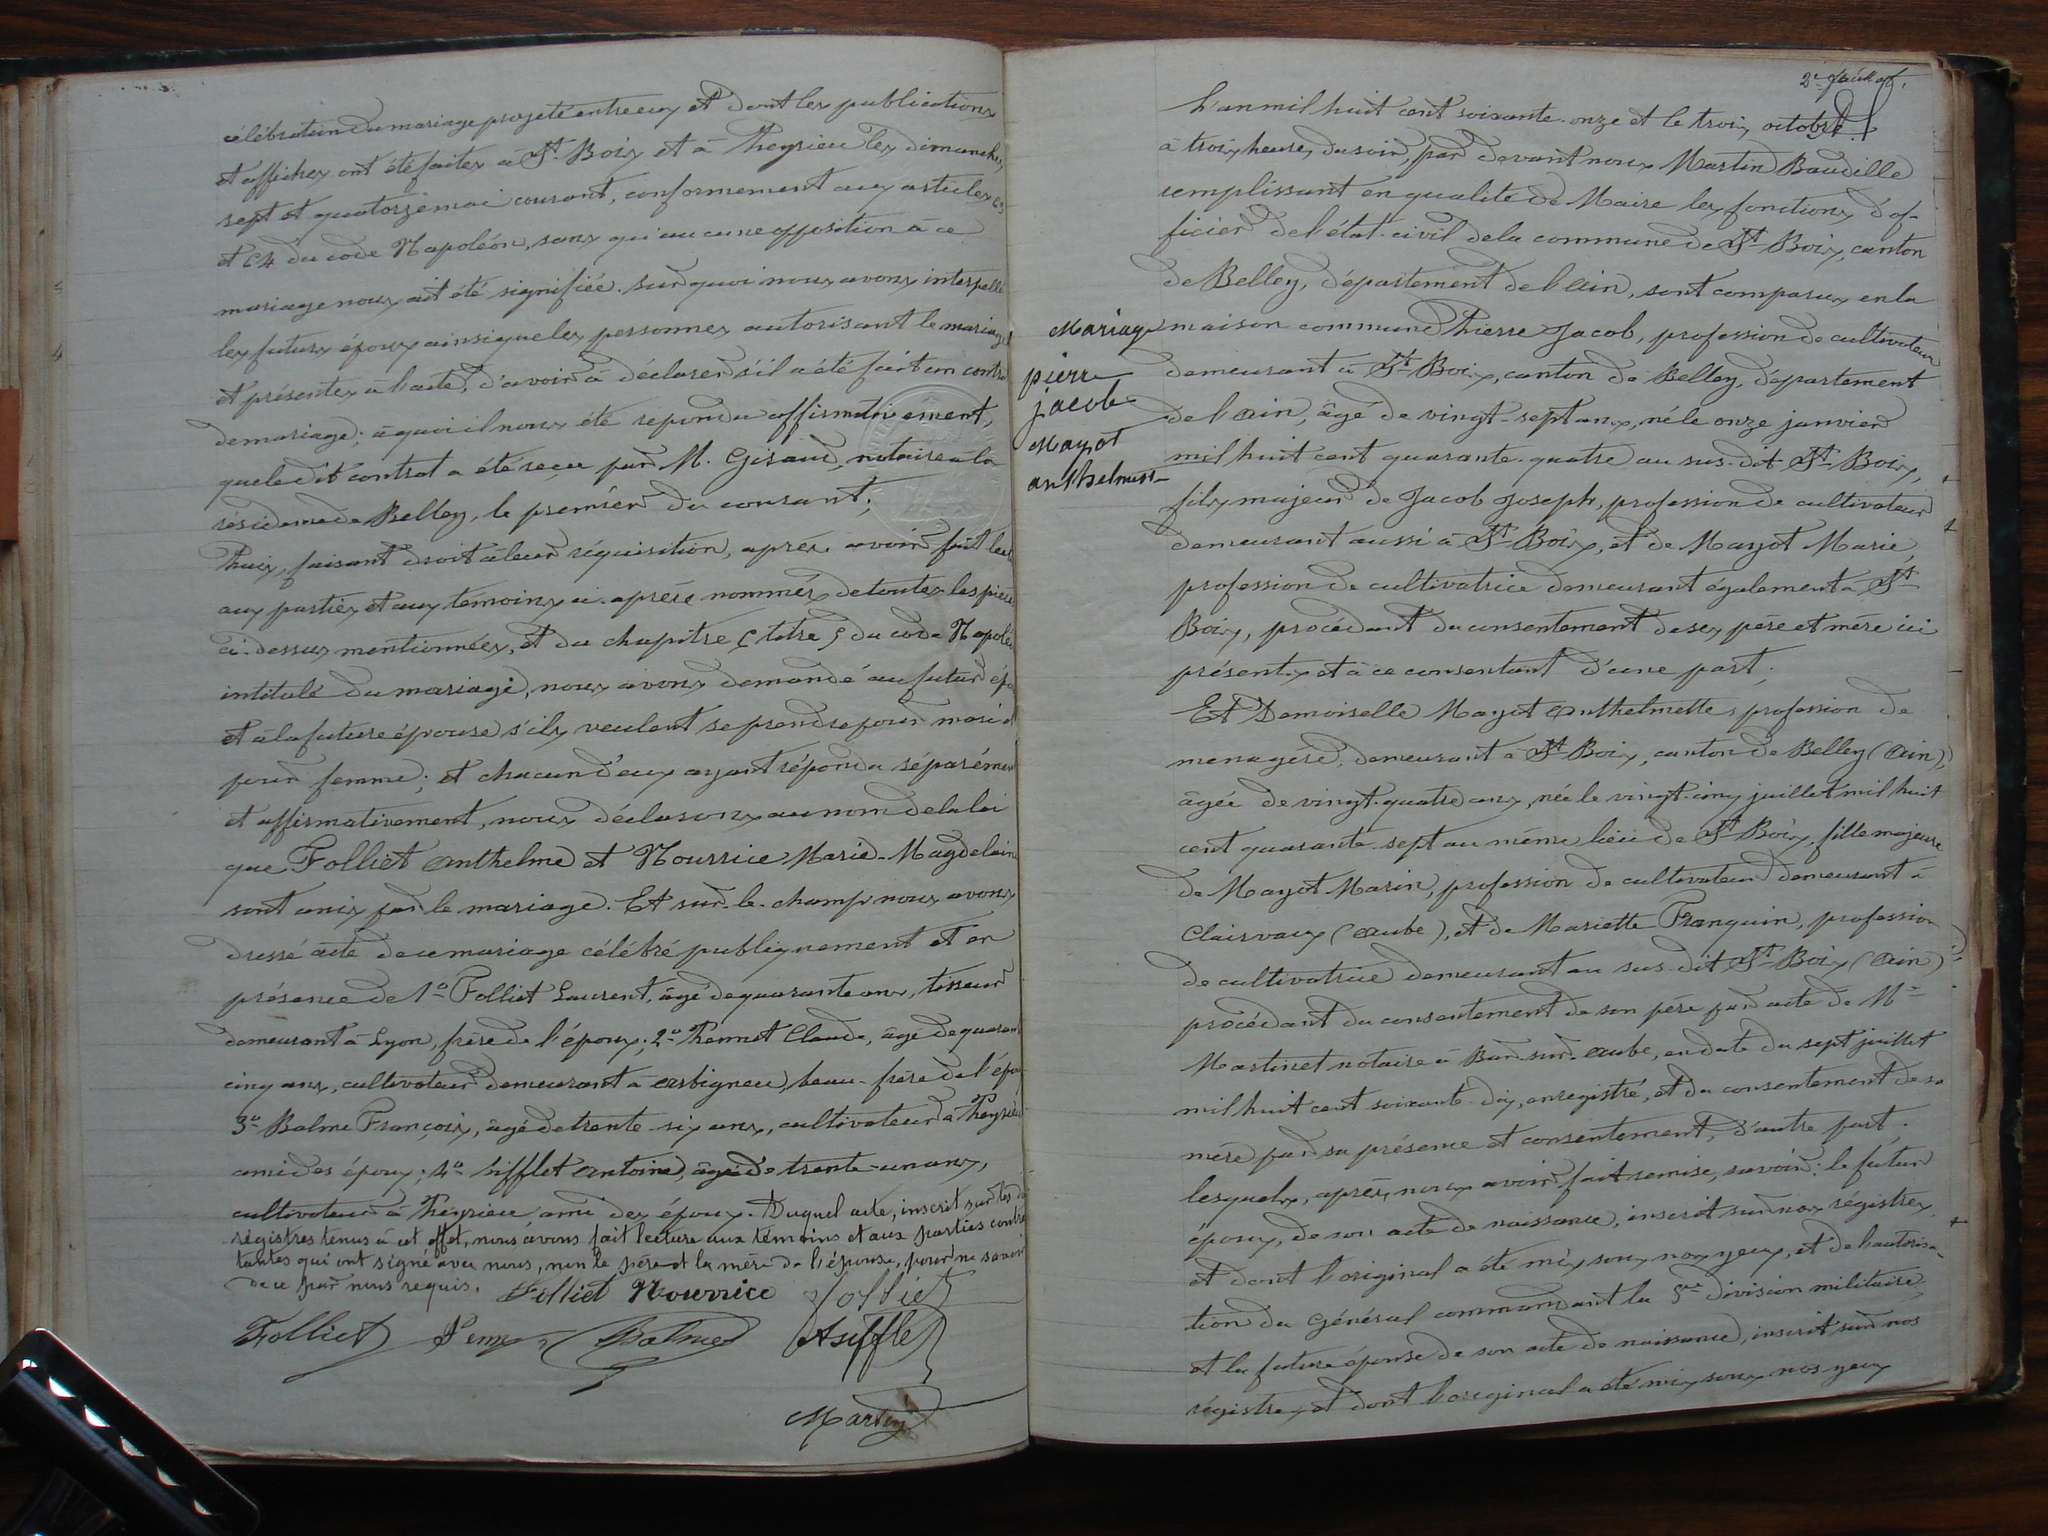 célébration du mariage projeté entre eux et dont les publications
et affiches ont été faites à St Bois et à Peyrieu les dimanches,
sept et quatorze mai courant, conformement aux articles 63
et 64 du code Napoléon, sans qu'aucune opposition à ce
mariage nous ait été signifiée. Sur quoi nous avons interpellé
les futurs époux ainsi que les personnes autorisant le mariage
et présentes à l'acte, d'avoir à déclarer s'il a été fait un contrat
de mariage; à quoi il nous été repondu affirmativement,
que le dit contrat a été reçu par M. Giraud, notaire à la
résidence de Belley, le premier du courant;
Puis, faisant droit à leur réquisition, après avoir fait lecture
aux parties et aux témoins ci-après nommés de toutes les pièces
ci-dessus mentionnées, et du chapitre 6 titre 5 du code Napoléon
intitulé du mariage, nous avons demandé au futur époux
et à la future épouse s'ils veulent se prendre pour mari et
pour femme; et chacun d'eux ayant répondu séparément
et affirmativement, nous déclarons au nom de la loi
que Folliet Anthelme et Nourrice Marie-Magdelaine
sont unis par le mariage. Et sur-le-champ nous avons
dressé acte de ce mariage célébré publiquement et en
présence de 1o Folliet Laurent, âgé de quarante ans, tisseur
demeurant à Lyon, frère de l'époux; 2o Pennet Claude, âgé de quarante
cinq ans, cultivateur demeurant à Arbignieu, beau-frère de l'époux
3o Balme François, âgé de trente-six ans, cultivateur à Peyrieu
ami des époux; 4o Sifflet Antoine, âgé de trente-un ans,
cultivateur à Peyrieu ami des époux. Duquel acte, inscrit sur les deux
régistres tenus à cet effet, nous avons fait lecture aux témoins et aux parties contrac
tantes qui ont signé avec nous, non le père et la mère de l'épouse, pour ne savoir
de ce par nous requis. Folliet Nourrice Folliet
Folliet Penne Balme A Sifflet
Martin
2e feuillet.
L'an mil huit cent soixante-onze et le trois octobre
à trois heures du soir, par devant nous Martin Baudille
remplissant en qualité de Maire les fonctions d'of-
ficier de l'état-civil de la commune de St Bois, canton
de Belley, département de l'Ain, sont comparus en la
Mariage
pierre
jacob
Mayot
anthelmette
maison commune Pierre Jacob, profession de cultivateur
demeurant à St Bois, canton de Belley, département
de l'Ain, âgé de vingt-sept ans, né le onze janvier
mil huit cent quarante-quatre au sus-dit St Bois,
fils majeur de Jacob Joseph, profession de cultivateur
demeurant aussi à St Bois, et de Mayot Marie,
profession de cultivatrice demeurant également à St
Bois, procédant du consentement de ses père et mère ici
présents et à ce consentant d'une part;
Et Demoiselle Mayot Anthelmette, profession de
menagère, demeurant à St Bois, canton de Belley (Ain),
âgée de vingt-quatre ans, née le vingt-cinq juillet mil huit
cent quarante-sept au même lieu de St Bois, fille majeure
de Mayot Marin, profession de cultivateur demeurant à
Clairvaux (Aube), et de Mariette Franquin, profession
de cultivatrice demeurant au sus-dit St Bois (Ain);
procédant du consentement de son père par acte de Me
Martinet notaire à Bar-sur-Aube, en date du sept juillet
mil huit cent soixante-dix, enregistré, et du consentement de sa
mère par sa présence et consentement, d'autre part.
Lesquels, après, nous avoir fait remise, savoir: le futur
époux, de son acte de naissance, inscrit sur nos régistres,
et dont l'original a été mis sous nos yeux, et de l'autorisa-
tion du Général commandant la 5me division militaire,
et la future épouse de son acte de naissance, inscrit sur nos
régistres et dont l'original a été mis sous nos yeux